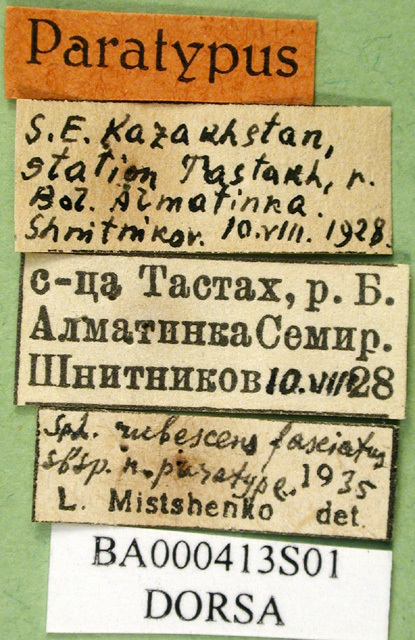 Paratypus
S.E. Kazakhstan,
station Tastakh, r.
Bol. Almatinka.
Shnitnikov. 10.VIII. 1928.
с-ца Тастах, р. Б.
Алматинка Семир.
Шнитников 10.VIII 28
Sph. rubescens fasciatus
sbsp. n. paratype. 1935
L. Mistshenko det.
BA000413S01
DORSA